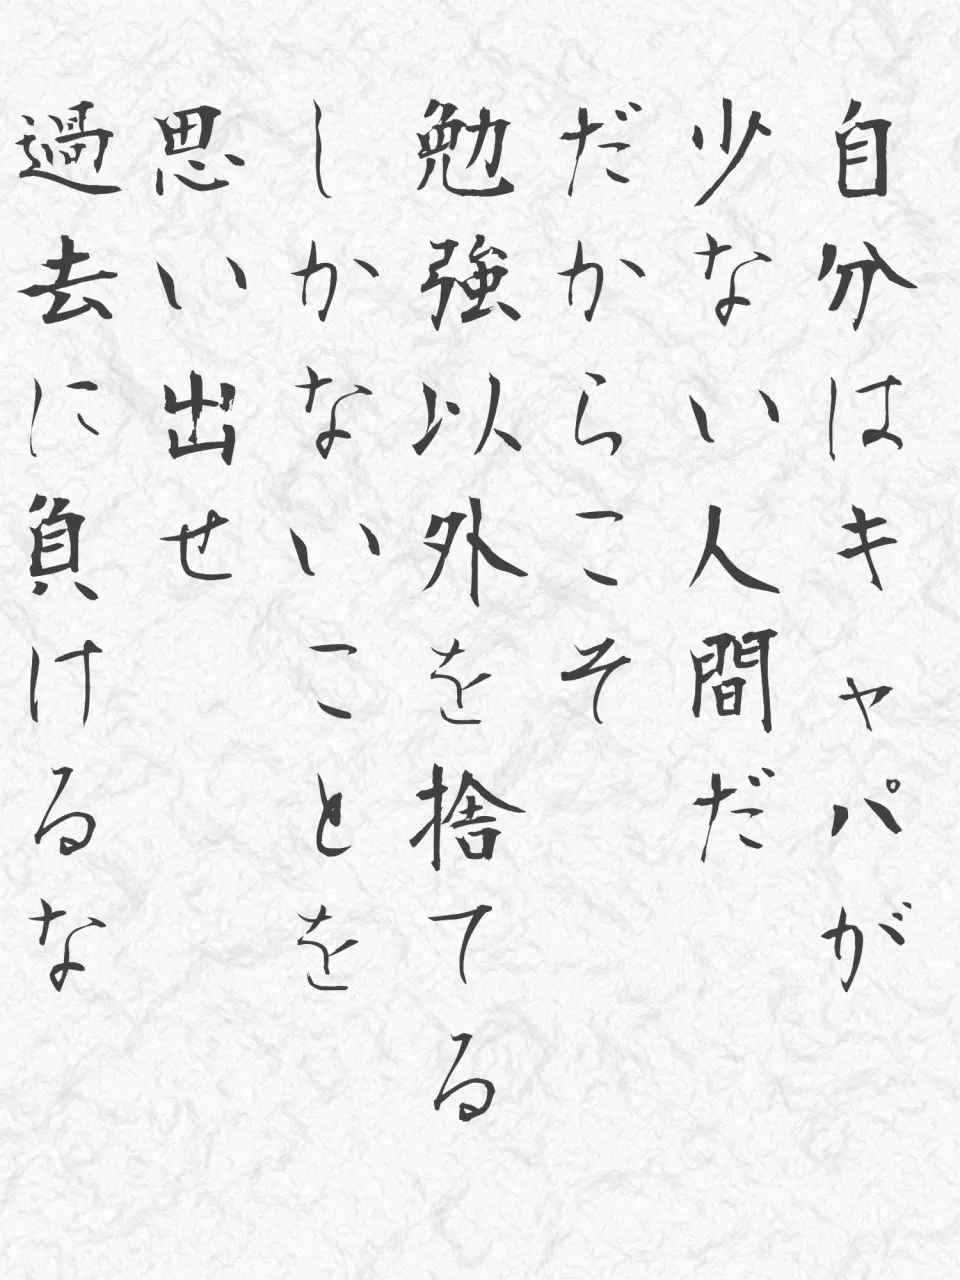 自分はキャパが
少ない人間だ
だからこそ
勉強以外を捨てる
しかないことを
思い出せ
過去に負けるな